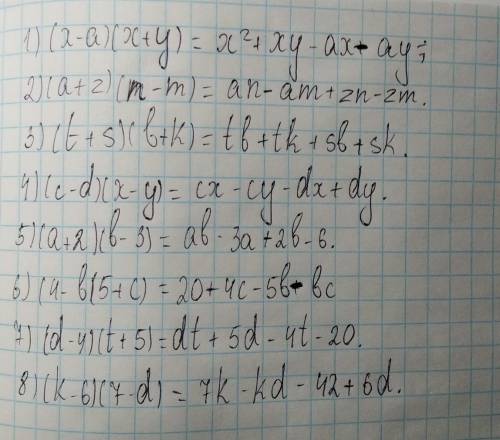 1) (x-a)(x+y) = x²+xy-ax-ay;
2) (a+z)(n-m) = an-am+zn-zm.
3) (t+s)(b+k) = tb+tk+sb+sk.
4) (c-d)(x-y) = cx-cy-dx+dy.
5) (a+2)(b-3) = ab-3a+2b-6.
6) (4-b(5+c) = 20+4c-5b-bc
7) (d-4)(t+5) = dt+5d-4t-20.
8) (k-6)(7-d) = 7k-kd-42+6d.